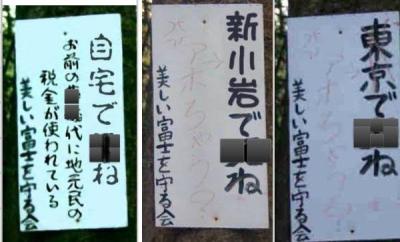 自宅で ね
お前の 代に地元民の
税金が使われている
美しい富士を守る会
新小岩で ね
アホちゃうの?
美しい富士を守る会
東京で ね
美しい富士を守る会